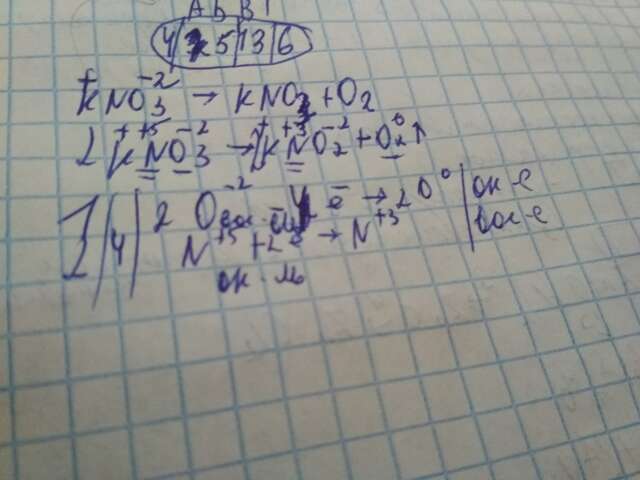 А Б В Г
4 | 5 | 3 | 6
KNO₃⁻² → KNO₂ + O₂
2 K⁺N⁺⁵O₃⁻² → 2K⁺N⁺³O₂⁻² + O₂⁰↑
4 | 2 O⁻² ē → 2O⁰ | ок-е
N⁺⁵ + 2ē → N⁺³ | вос-е
ок-ль